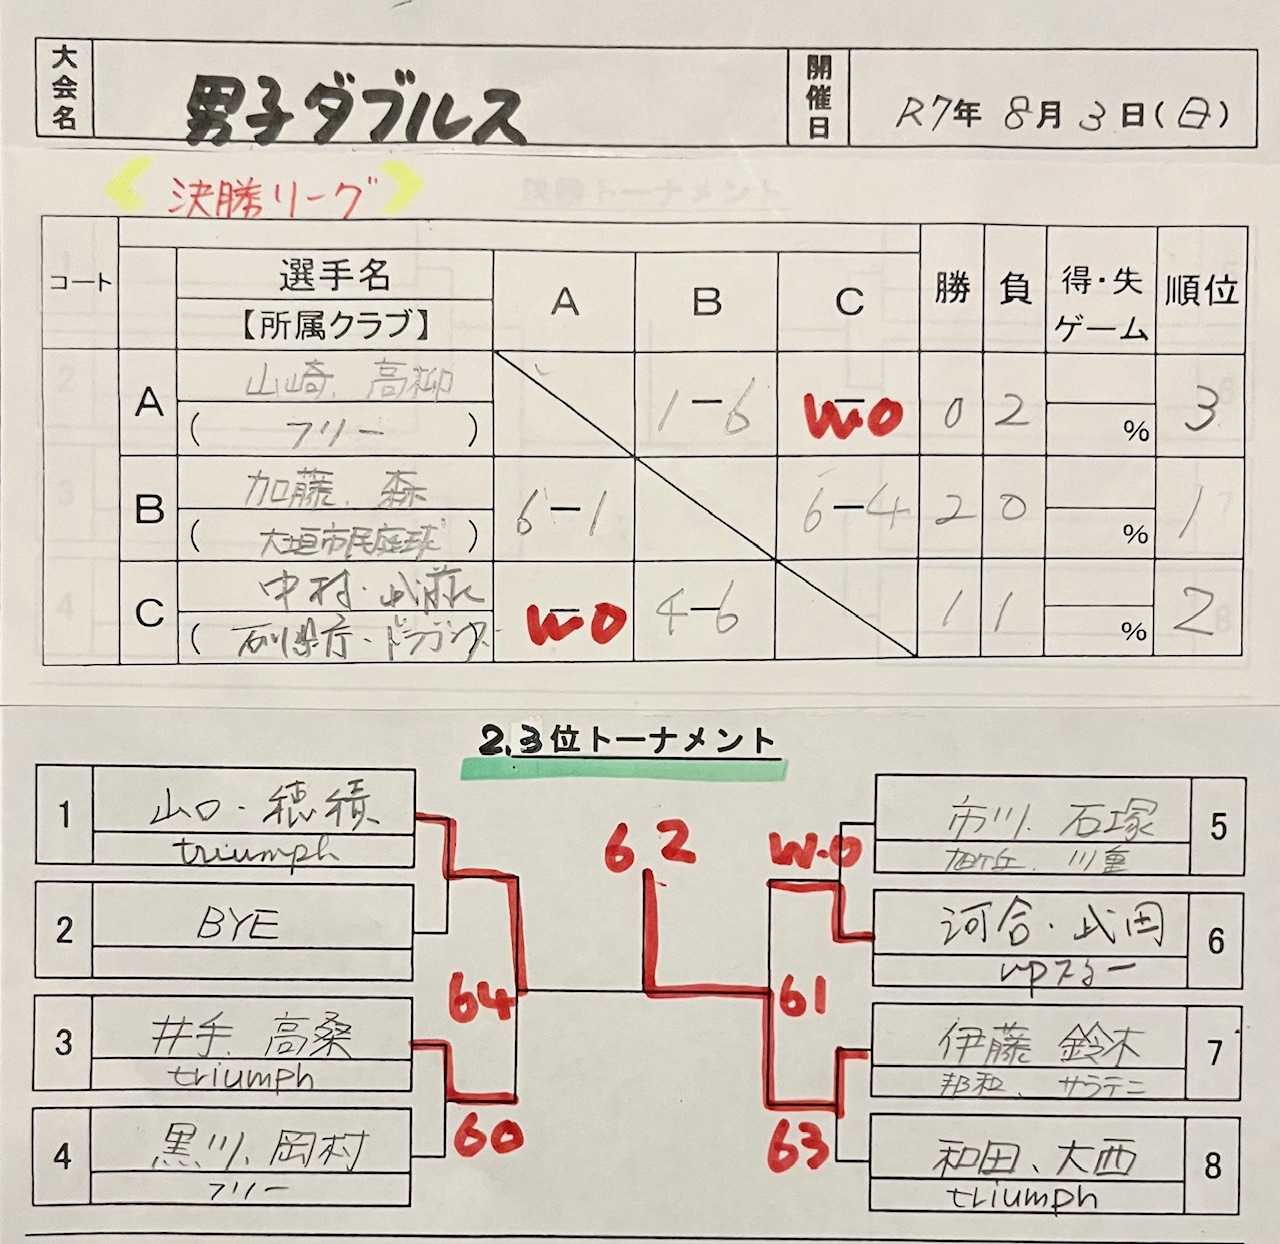 大会名 男子ダブルス 開催日 R7年 8月 3日(日)
決勝リーグ
コート 選手名 【所属クラブ】 A B C 勝 負 得・失ゲーム 順位
A 山崎、高柳 1-6 W.O 0 2 3
( フリー ) %
B 加藤、森 6-1 6-4 2 0 1
( 大垣市民庭球 ) %
C 中村・武藤 W.O 4-6 1 1 2
( 石川県庁・ドラゴンズ %
2,3位トーナメント
1 山口・穂積
triumph
2 BYE
3 井手、高桑
triumph
4 黒川、岡村
フリー
64
60
6 2
W.O
61
63
市川、石塚 5
旭ヶ丘、川重
河合・武田 6
upスター
伊藤 鈴木 7
邦和、サラテニ
和田、大西 8
triumph